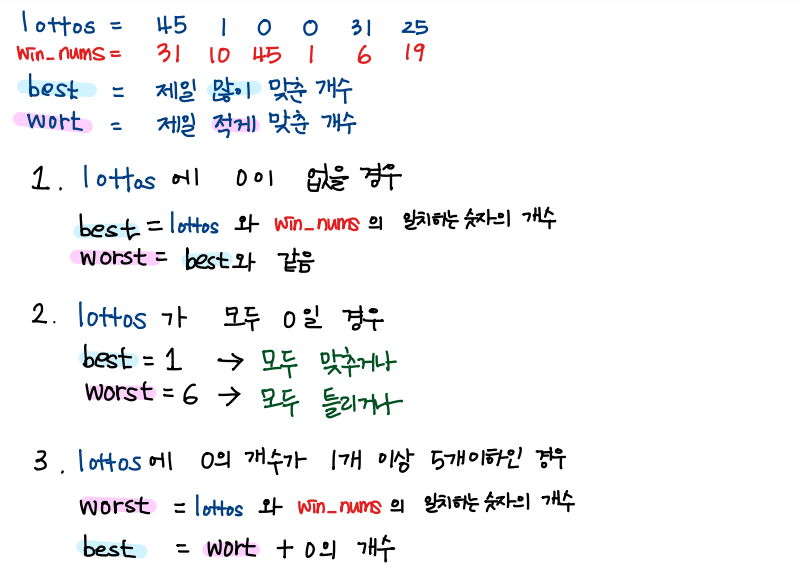 lottos = 45 1 0 0 31 25
win_nums = 31 10 45 1 6 19
best = 제일 많이 맞춘 개수
wort = 제일 적게 맞춘 개수
1. lottos 에 0이 없을 경우
best = lottos 와 win_nums 의 일치하는 숫자의 개수
worst = best와 같음
2. lottos 가 모두 0일 경우
best = 1 → 모두 맞추거나
worst = 6 → 모두 틀리거나
3. lottos에 0의 개수가 1개 이상 5개이하인 경우
worst = lottos 와 win_nums 의 일치하는 숫자의 개수
best = wort + 0의 개수